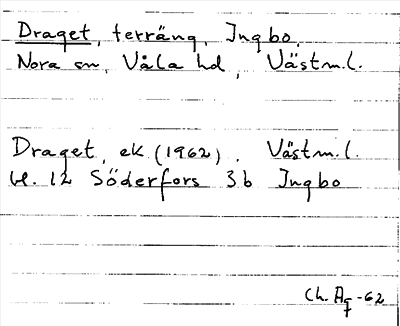 Draget, terräng, Ingbo,
Nora sn, Våla hd, Västm.l.
Draget, ek (1962). Västm.l.
bl. 12 Söderfors 3b Ingbo
Ch. Ag -62